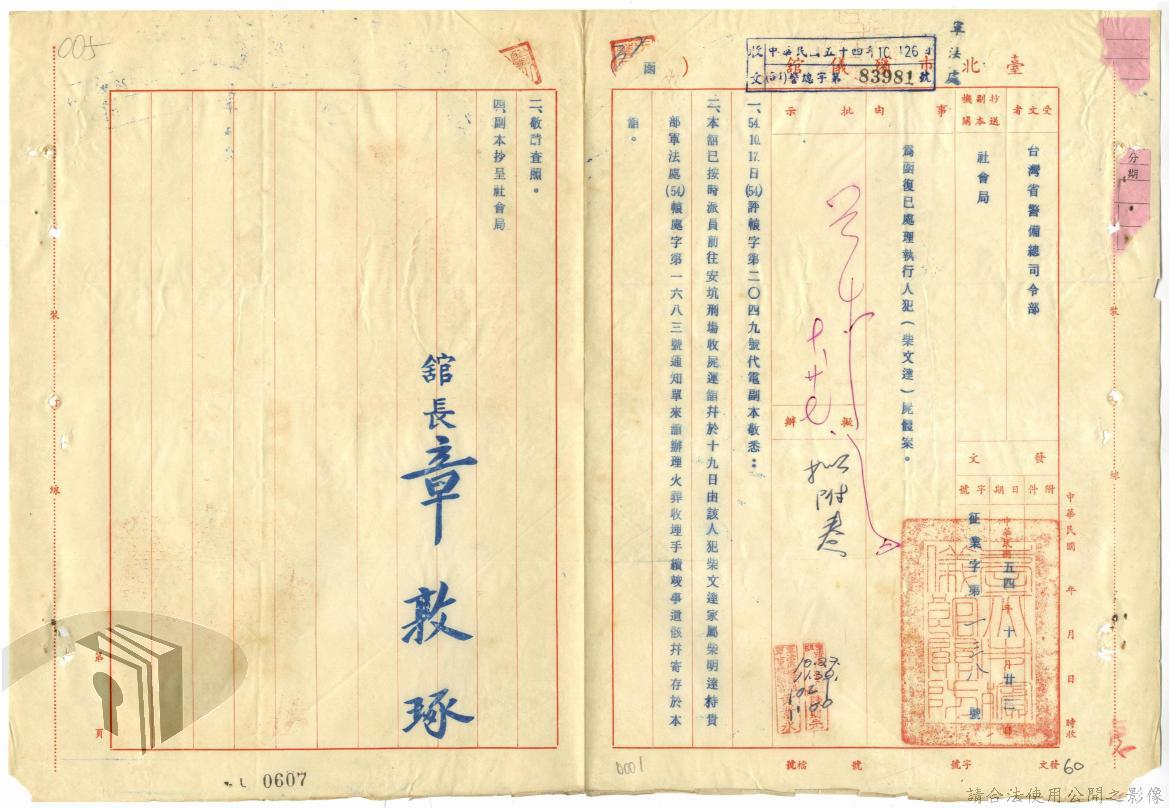 臺北市殯儀館
(函)
軍法處
收文
中華民國五十四年10月26日
(54)警總字第83981號
受文者
台灣省警備總司令部
抄送副本機關
社會局
事由
為函復已處理執行人犯(柴文達)屍體案。
批示
擬辦
擬附卷
發文
附件
日期
中華民國五四年十月廿三日
字號
征業字第一三八號
中華民國 年 月 日 時收
發文 字號
檔號
60
一、54.10.17.日(54)評轅字第二〇四九號代電副本敬悉:
二、本館已按時派員前往安坑刑場收屍運館并於十九日由該人犯柴文達家屬柴明達持貴
部軍法處(54)轅處字第一六八三號通知單來館辦理火葬收埋手續竣事遺骸幷寄存於本
館。
二、敬請查照。
四、副本抄呈社會局
館長 章敦琢
裝
線
裝
線
第 頁
分期
005
0001
0607
請合法使用公開之影像